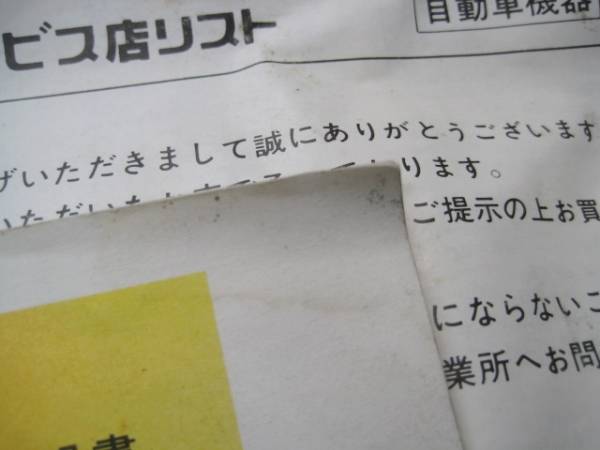 ビス店リスト
自動車機器
げいただきまして誠にありがとうございます
ります。
ご提示の上お買
にならないこ
業所へお問
書